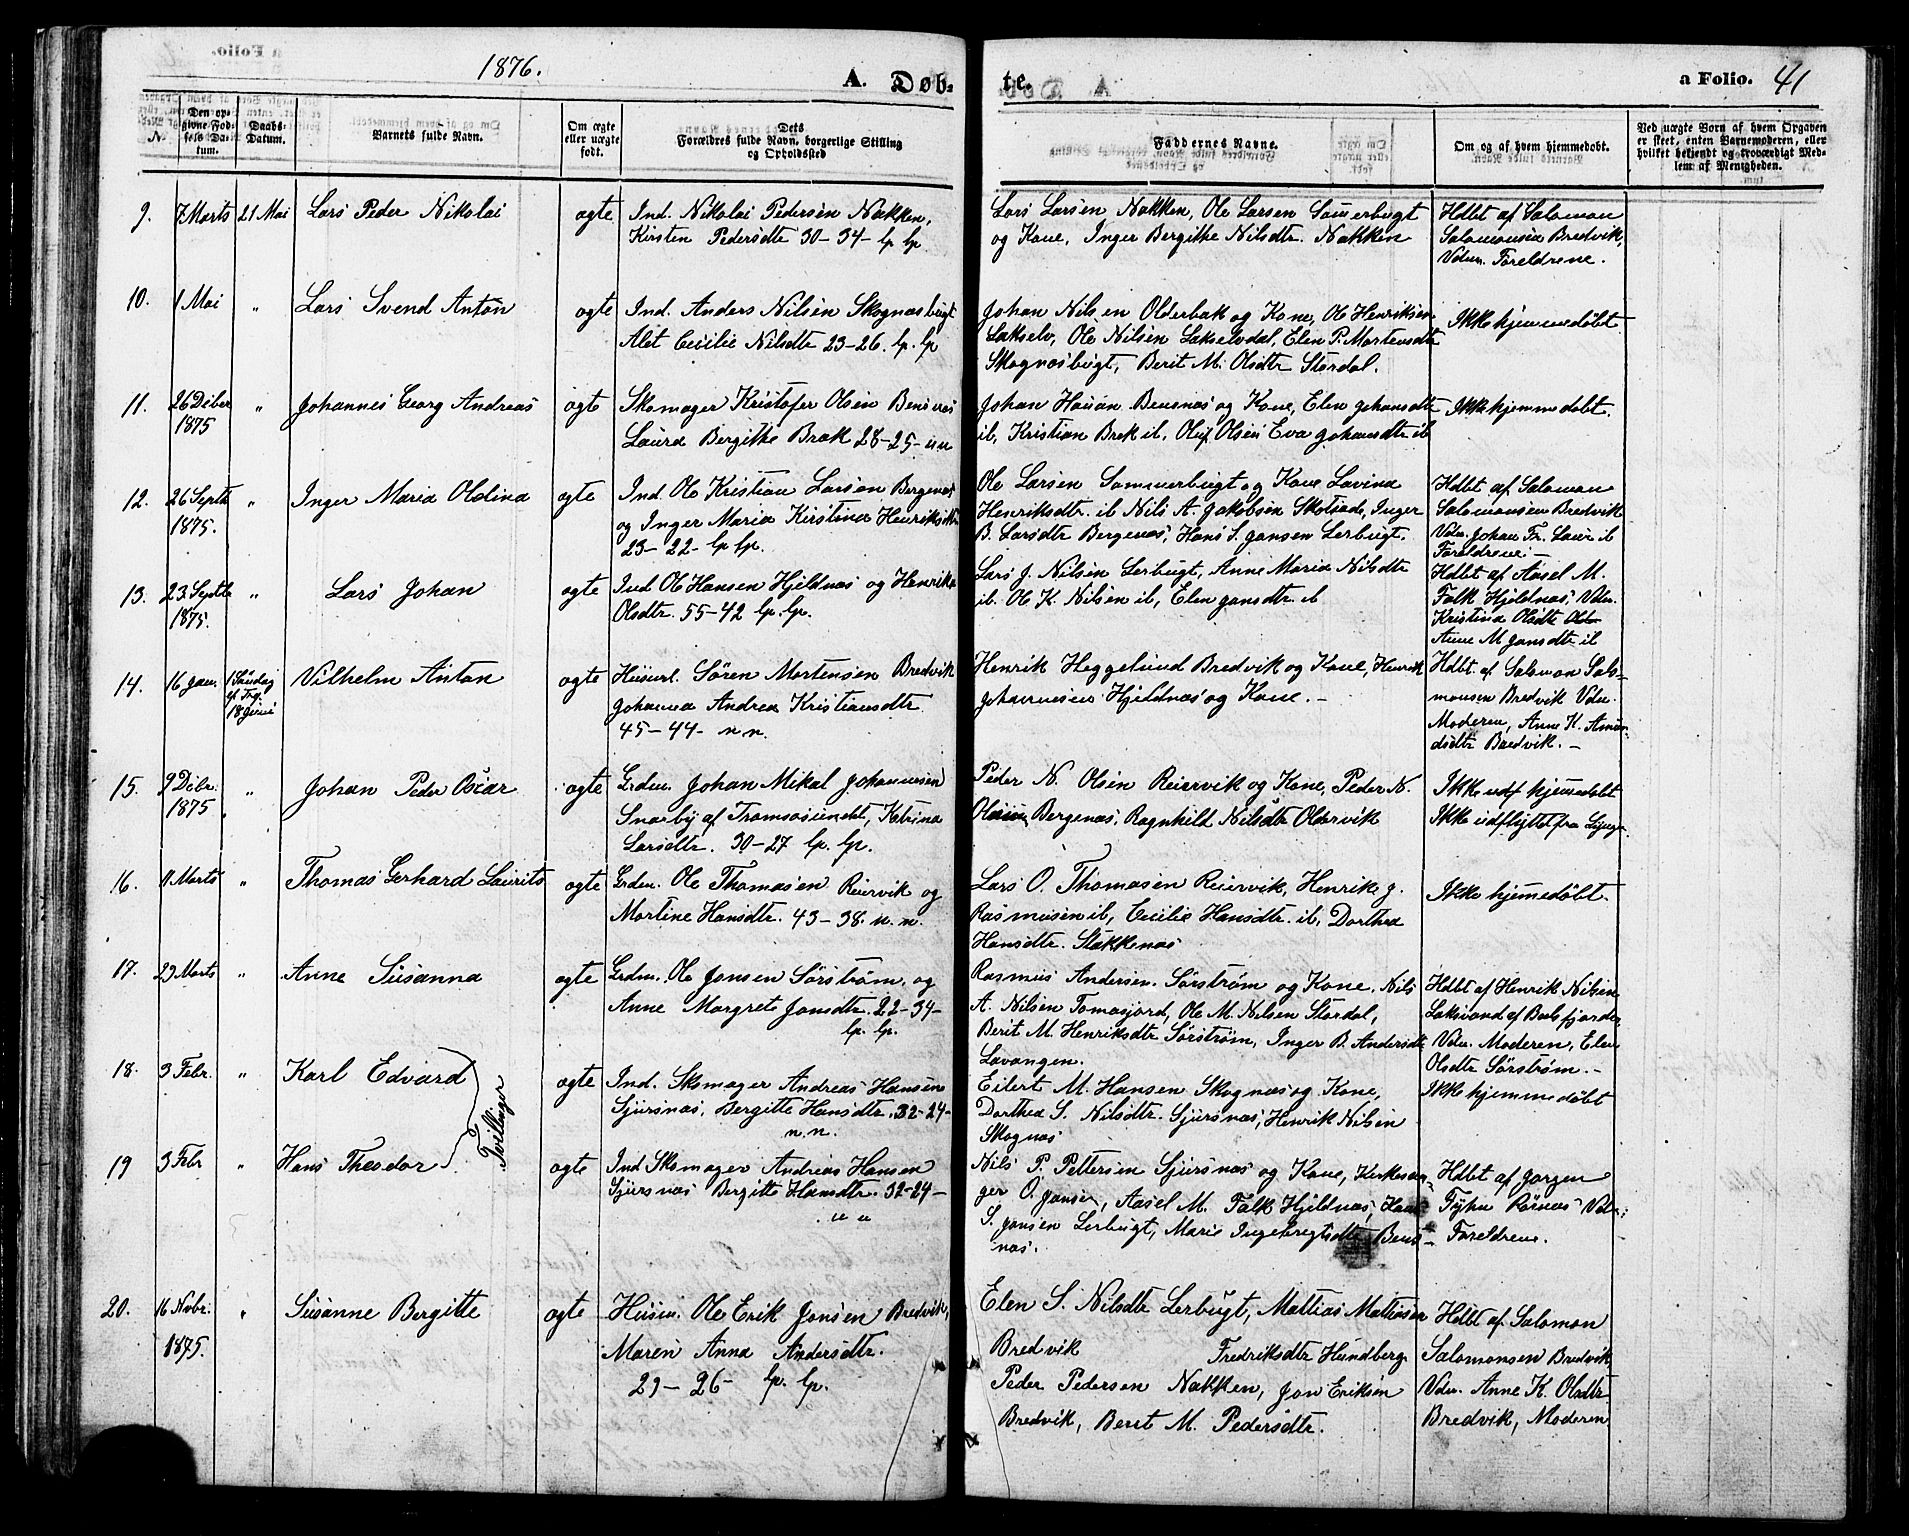 1876.
A. Døb-
te.
a Folio. 41
N.
Den op-
givne Fød-
sels Da-
tum.
Daabs-
Datum.
Barnets fulde Navn.
Om ægte
eller uægte
født.
Dets
Forældres fulde Navn, borgerlige Stilling
og Opholdssted
Faddernes Navne.
Om og af hvem hjemmedøbt.
Ved uægte Børn af hvem Opgaven
er skeet, enten Barnemoderen, eller
hvilket bekjendt og troværdigt Med-
lem af Menigheden.
9. 7 Marts 21 Mai Lars Peder Nikolai ægte Ind. Nikolai Pedersen Nakken,
Kirsten Pedersdtr 30-34- lp lp.
Lars Larsen Nakken, Ole Larsen Somerbugt
og Kone, Inger Bergithe Nilsdtr. Nakken
Hdbt af Salomon
Salomonsen Bredvik,
Vidn. Foreldrene.
10. 1 Mai " Lars Svend Anton ægte Ind. Anders Nilsen Skognæsbugt
Alet Cecilie Nilsdtr 23-26. lp. lp
Johan Nilsen Olderbak og Kone, Ole Henriksen
Lakselv, Ole Nilsen Lakselvdal, Elen P. Mortensdtr
Skognæsbugt, Berit M. Olsdtr Stordal.
Ikke hjemmedøbt
11. 26 Dcber " Johannes Georg Andreas ægte Skomager Kristofer Olsen Bensnæs
1875 Laura Bergithe Brok 28-25- n n
Johan Hanson Bensnæs og Kone, Elen Johansdtr
ib, Kristian Brek ib, Oluf Olsen Eva Johansdtr ib
Ikke hjemmedøbt.
12. 26 Septb " Inger Maria Oldina ægte Ind Ole Kristian Larsen Bergenæs
1875. og Inger Maria Kirstina Henriksdtr
23-22- lp lp.
Ole Larsen Sommerbugt og Kone Lavina
Henriksdtr. ib Nils A. Jakobsen Inger
B. Larsdtr Bergenæs, Hans S. Jansen Lerbugt.
Hdbt af Salomon
Salomonsen Bredvik
Vidn. Johan Fr. ib
Foreldrene -
13. 23 Septb " Lars Johan ægte Ind Ole Hansen Hjeldnæs og Henrika
1875. Olsdtr. 55-42 lp. lp.
Lars J. Nilsen Lerbugt, Anne Maria Nilsdtr
ib. Ole K. Nilsen ib, Elen Jansdtr ib
Hdbt af Aasel M.
Falk Hjeldnæs, Vidn.
Kristina Olsdtr
Anne M Jansdtr ib
14. 16 Jan. 1 Søndag Vilhelm Anton ægte Husml. Søren Mortensen Bredvik
ef Trf. Johanna Andrea Kristiansdtr
18 Juni 45-44- n n.
Henrik Heggelund Bredvik og Kone, Henrik
Johannesen Hjeldnæs og Kone. -
Hdbt. af Salomon Salo-
monsen Bredvik Vidn.
Moderen, Anne K. Amun-
dsdtr Bredvik. -
15. 9 Dcbr. " Johan Peder Oscar ægte Grdm. Johan Mikal Johannesen
1875 Snarby af Tromsøsundet, Katrina
Larsdtr. 30-27 lp. lp.
Peder N. Olsen Reiervik og Kone, Peder N.
Olsen Bergenæs, Ragnhild Nilsdtr Oldervik
Ikke hjemmedøbt
Ikke udflyttet fra
16. 11 Marts " Thomas Gerhard Laurits ægte Grdm. Ole Thomasen Reiervik og
Martine Hansdtr. 43-38. n. n.
Lars O. Thomasen Reiervik, Henrik J.
Rasmusen ib, Cecilie Hansdtr. ib, Dorthea
Hansdtr. Stakkenæs
Ikke hjemmedøbt.
17. 29 Marts " Anne Susanna ægte Grdm. Ole Jonsen Sørstrøm, og
Anne Margrete Jonsdtr. 22-34-
lp. lp.
Rasmus Andersen Sørstrøm og Kone, Nils
A. Nilsen Tomasjord, Ole M. Nilsen Stordal,
Berit M. Henriksdtr Sørstrøm, Inger B. Andersdtr
Lavangen.
Hdbt af Henrik Nilsen
Laksvand af Balsfjorden
Vidn. Moderen, Elen
Olsdtr Sørstrøm. -
18. 3 Febr. " Karl Edvard ægte Ind. Skomager Andreas Hansen
Sjursnæs, Bergitte Hansdtr. 32-24-
n. n.
Tvillinger
Eilert M. Hansen Skognæs og Kone,
Dorthea S. Nilsdtr. Sjursnæs, Henrik Nilsen
Skognæs
Ikke hjemmedøbt
19 3 Febr " Hans Theodor ægte Ind Skomager Andreas Hansen
Sjursnæs Bergitte Hansdtr. 32-24-
" "
Nils P. Pettersen Sjursnæs og Kone, Kirkesan-
ger O. Jansen, Aasel M. Falk Hjeldnæs, Hans
S. Jansen Lerbugt, Marie Ingebregtsdtr Bens-
næs.
Hdbt af Jørgen
Fyhn Rørnæs Vidn:
Foreldrene.
20. 16 Nvbr. " Susanne Bergitte ægte Husm. Ole Erik Jonsen Bredvik,
1875. Maren Anna Andersdtr.
29-26- lp. lp.
Elen S. Nilsdtr Lerbugt, Mattias Mattiasen
Bredvik Fredriksdtr Hundberg
Peder Pedersen Nakken, Jon Eriksen
Bredvik, Berit M. Pedersdtr.
Hdbt af Salomon
Salomonsen Bredvik
Vidn. Anne K. Olsdtr
Bredvik, Moderen